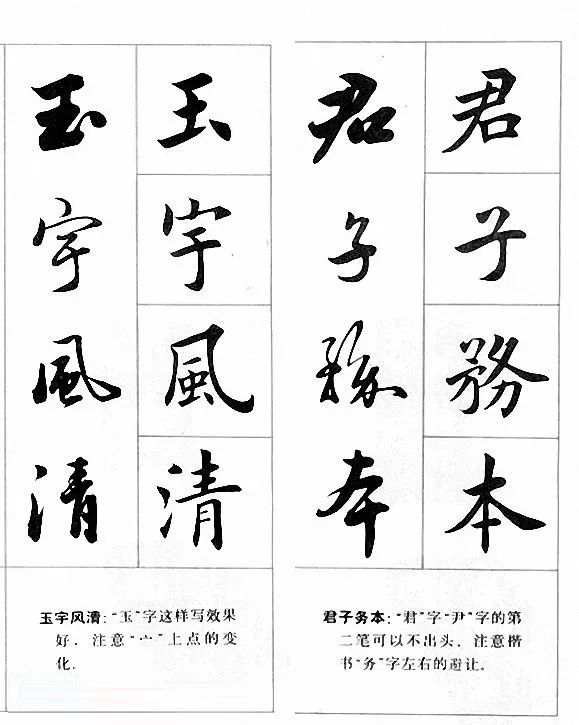 玉宇風清
玉宇風清
玉宇风清:“玉”字这样写效果
好，注意“宀”上点的变
化.
君子務本
君子務本
君子务本:“君”字“尹”字的第
二笔可以不出头，注意楷
书“务”字左右的避让.